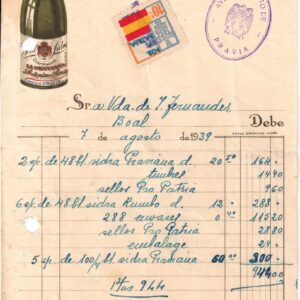 PRAVIA
Sra Vda. de J. Fernandez
Boal
Debe
7 de agosto de 1939
2 cp. de 48 bt. sidra Pramana d. 20 50 164 -
timbres 14 40
sellos Pro Patria 9 60
6 cp. de 48 bt. sidra d. 12 - 288 -
288 0 40 115 20
sellos Pro Patria 28 80
embalage 24 -
5 cp. de 100/4 bt. sidra Pramana 60 00 300 -
944 00
Ptas 944